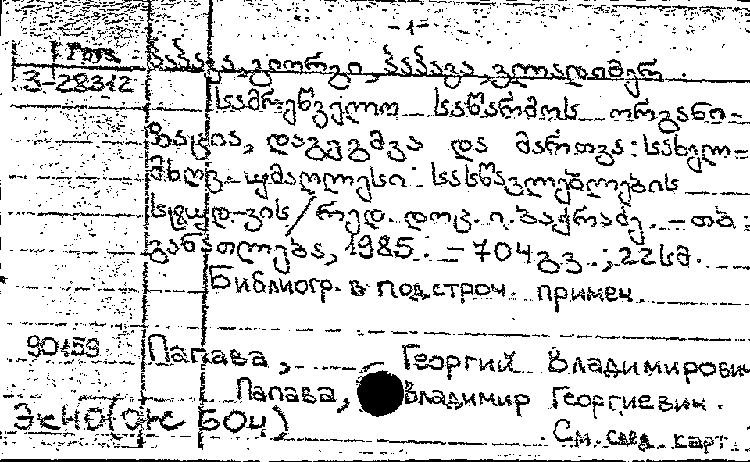 -1-
პაპავა, გიორგი, პაპავა, ვლადიმერ.
3-28312
სამრეწველო საწარმოს ორგანი-
ზაცია, დაგეგმვა და მართვა: სახელ-
მძღვ. უმაღლესი სასწავლებლების
სტუდ-ვის / რედ. დოც. ი. ბაქრაძე. – თბ.:
განათლება, 1985. – 704 გვ.; 22 სმ.
Библиогр. в подстроч. примеч.
90159 Папава, Георгий Владимирович
Папава, Владимир Георгиевич.
См. след. карт.